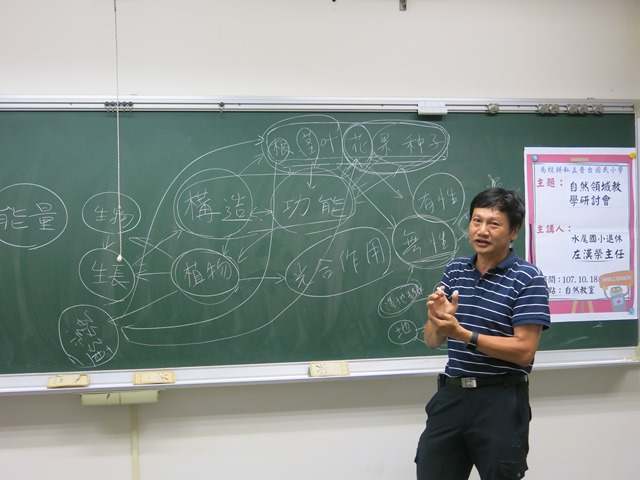 根莖叶花果种子
能量
生物
構造
功能
有性
無性
生長
植物
光合作用
地
南投縣私立普台國民小學
主題：
自然領域教
學研討會
主講人：
水尾國小退休
左漢榮主任
間：107.10.18
點：自然教室